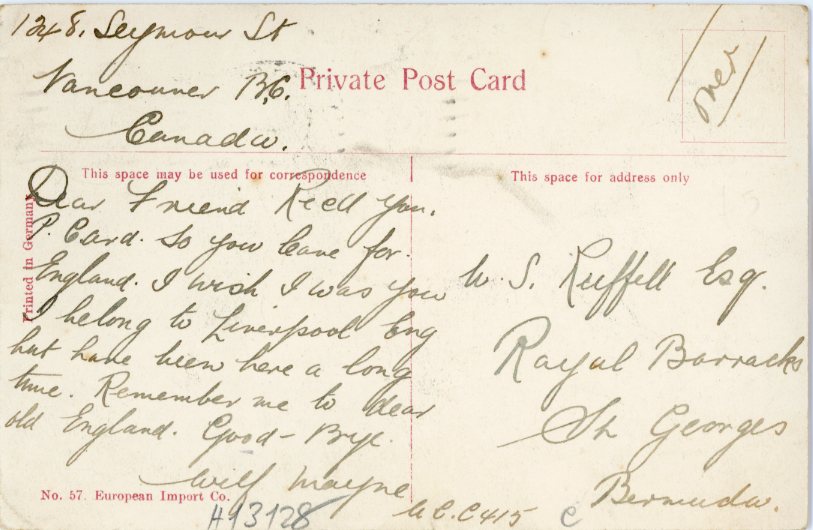 1248. Seymour St
Vancouver B.C.
Canada.
Private Post Card
over
This space may be used for correspondence
This space for address only
Printed in Germany
Dear Friend Recd you.
P. Card. So you leave for.
England. I wish I was you
I belong to Liverpool Eng
but have been here a long
time. Remember me to dear
old England. Good-Bye.
Wilf Mayne
W. S. Ruffell Esq.
Royal Barracks
St Georges
Bermuda.
No. 57. European Import Co.
H13128
C415
C